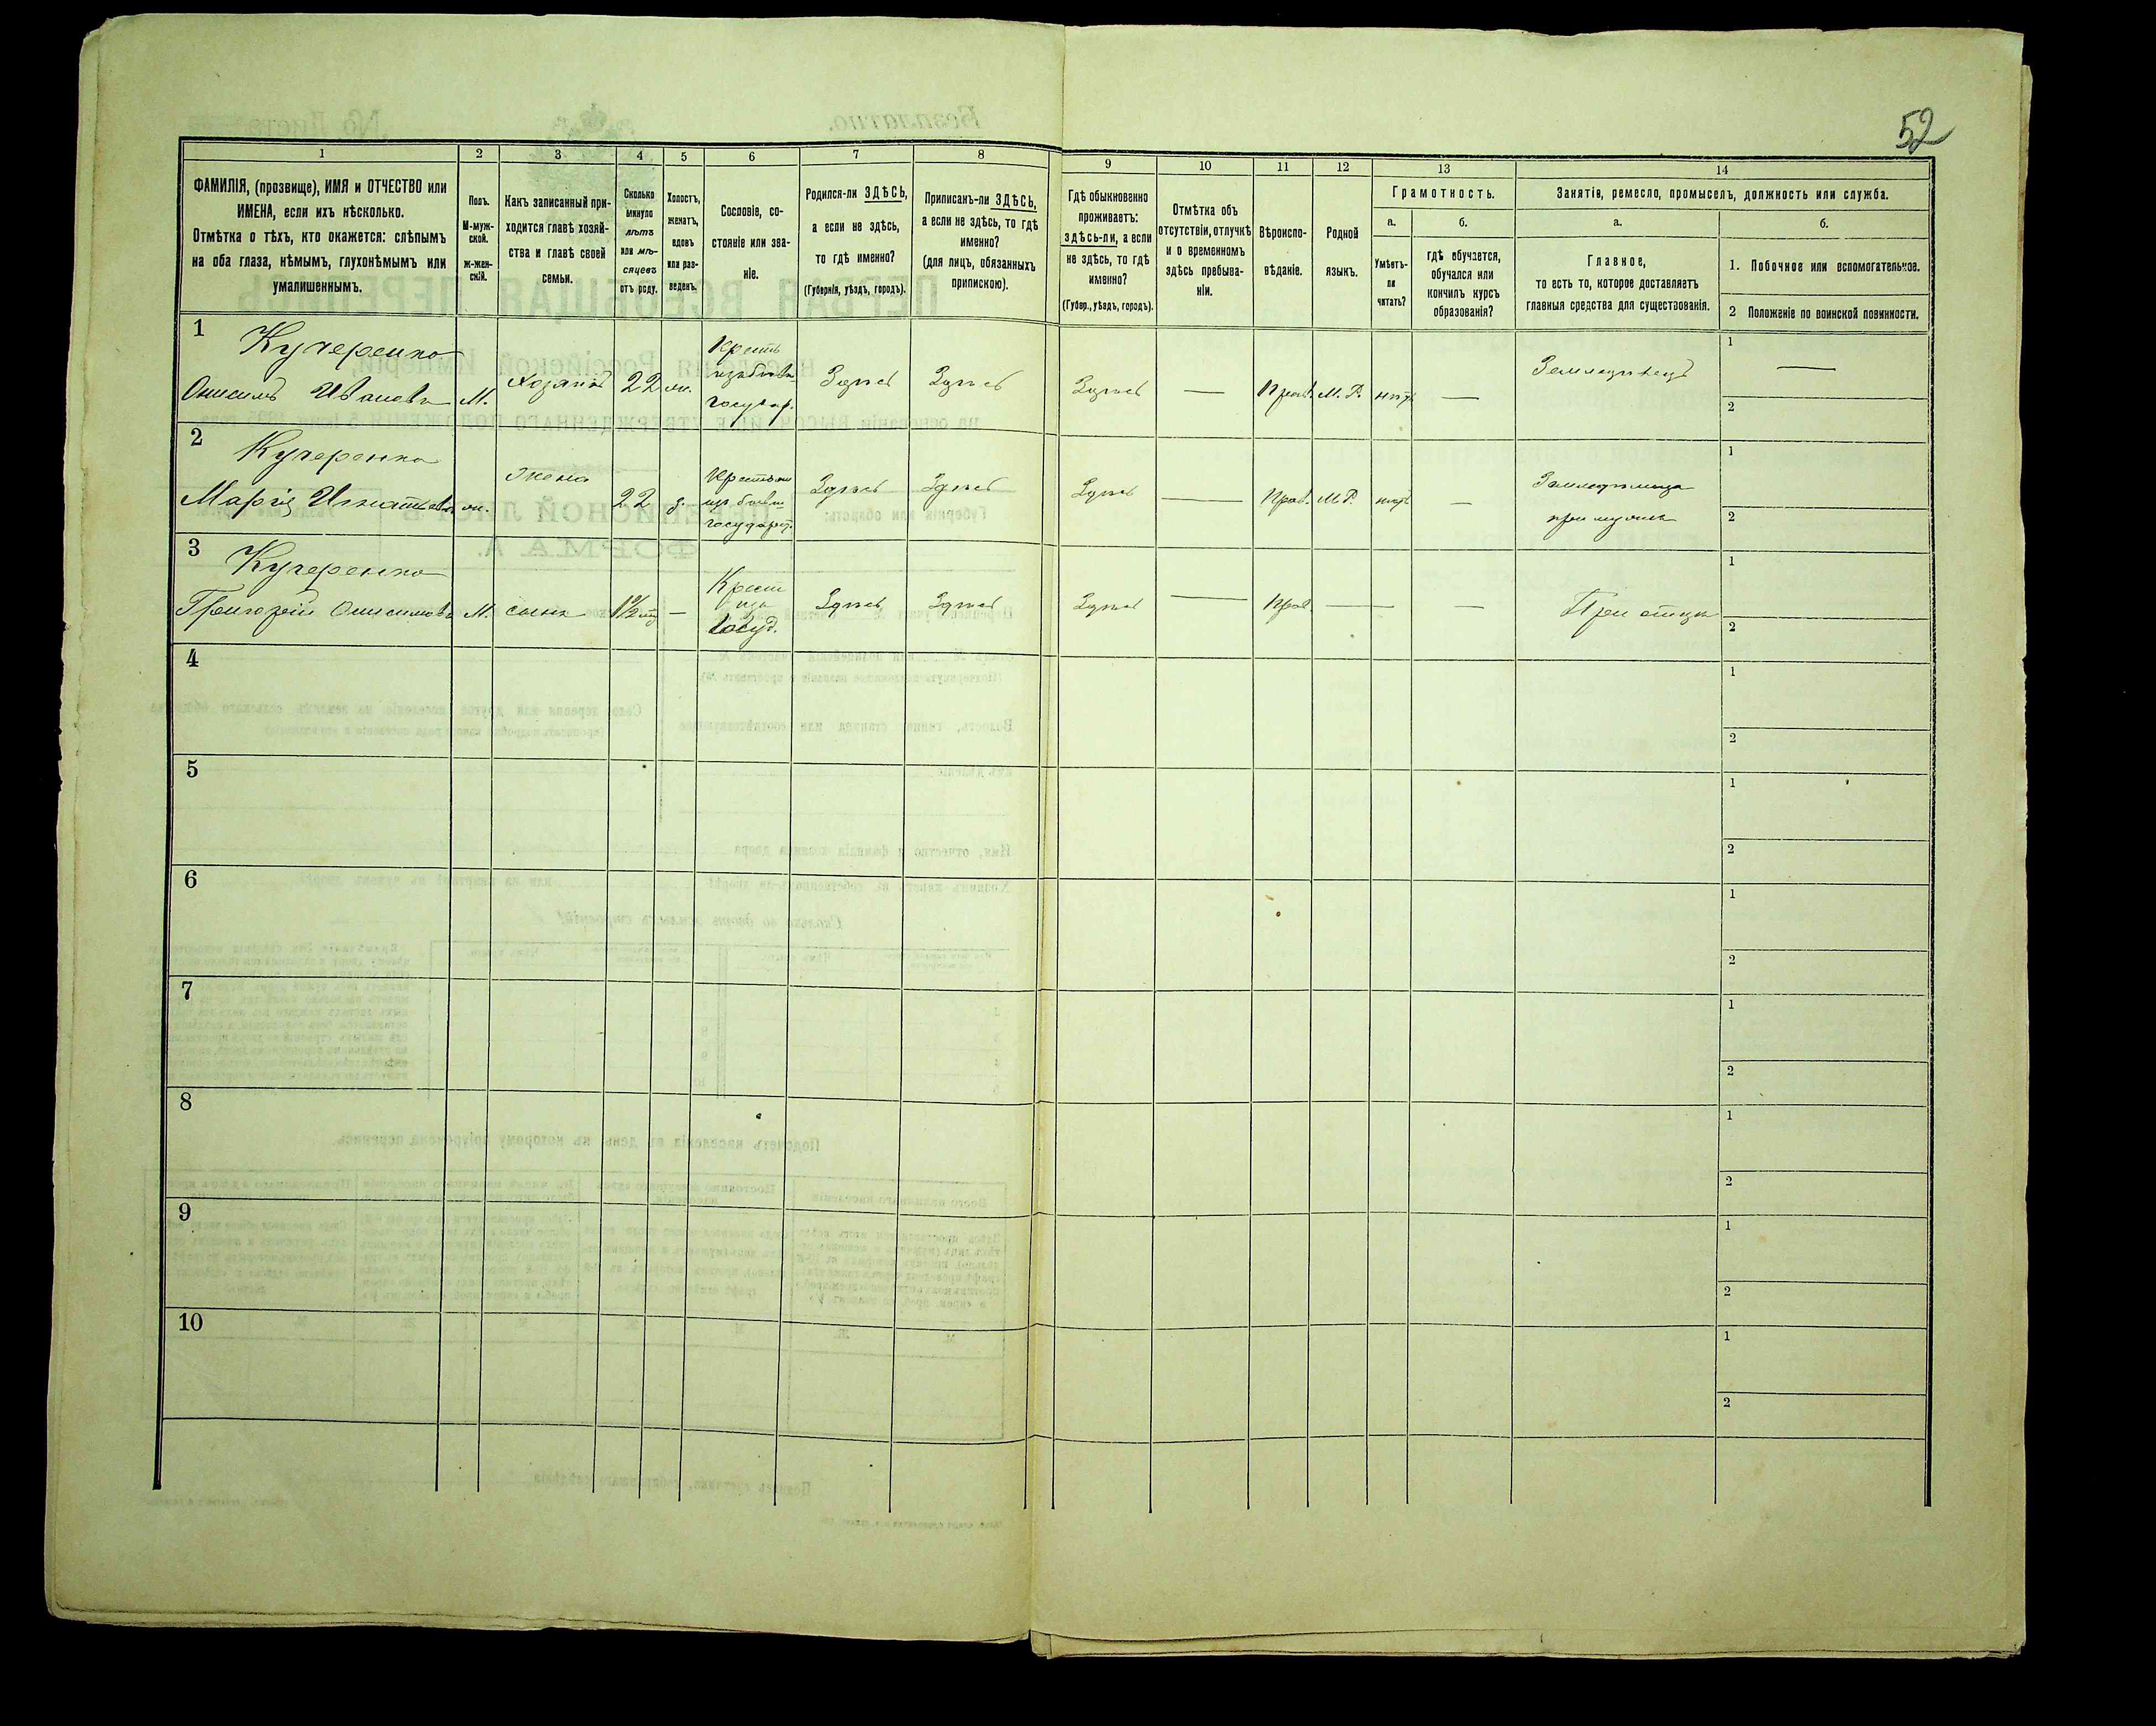 52
1 2 3 4 5 6 7 8 9 10 11 12 13 14
ФАМИЛІЯ, (прозвище), ИМЯ и ОТЧЕСТВО или
ИМЕНА, если ихъ нѣсколько.
Отмѣтка о тѣхъ, кто окажется: слѣпымъ
на оба глаза, нѣмымъ, глухонѣмымъ или
умалишеннымъ.
Полъ.
М-муж-
ской.
ж-жен-
скій.
Какъ записанный при-
ходится главѣ хозяй-
ства и главѣ своей
семьи.
Сколько
минуло
лѣтъ
или мѣ-
сяцевъ
отъ роду.
Холостъ,
женатъ,
вдовъ
или раз-
веденъ.
Сословіе, со-
стояніе или зва-
ніе.
Родился-ли ЗДѢСЬ,
а если не здѣсь,
то гдѣ именно?
(Губернія, уѣздъ, городъ).
Приписанъ-ли ЗДѢСЬ,
а если не здѣсь, то гдѣ
именно?
(для лицъ, обязанныхъ
припискою).
Гдѣ обыкновенно
проживаетъ:
здѣсь-ли, а если
не здѣсь, то гдѣ
именно?
(Губер., уѣздъ, городъ).
Отмѣтка объ
отсутствіи, отлучкѣ
и о временномъ
здѣсь пребыва-
ніи.
Вѣроиспо-
вѣданіе.
Родной
языкъ.
Грамотность.
а.
Умѣетъ-
ли
читать?
б.
гдѣ обучается,
обучался или
кончилъ курсъ
образованія?
Занятія, ремесло, промыселъ, должность или служба.
а.
Главное,
то есть то, которое доставляетъ
главныя средства для существованія.
б.
1. Побочное или вспомогательное.
2 Положеніе по воинской повинности.
1
Кучеренко
Онисимъ Ивановъ М. Хозяинъ 22 ж.
Крест.
изъ бывш.
государ.
Здѣсь Здѣсь Здѣсь — Прав. М. Р. нѣтъ — Земледѣлецъ
1 —
2
2
Кучеренко
Марія Игнатьева ж. Жена 22 з.
Крестьян
изъ бывш
государст.
Здѣсь Здѣсь Здѣсь — Прав. М.Р. нѣтъ — Земледѣлица
при мужѣ
1
2
3
Кучеренко
Григорій Онисимовъ М. сынъ —
Крест
изъ
Госуд.
Здѣсь Здѣсь Здѣсь — Прав — — При отцѣ
1
2
4
1
2
5
1
2
6
1
2
7
1
2
8
1
2
9
1
2
10
1
2